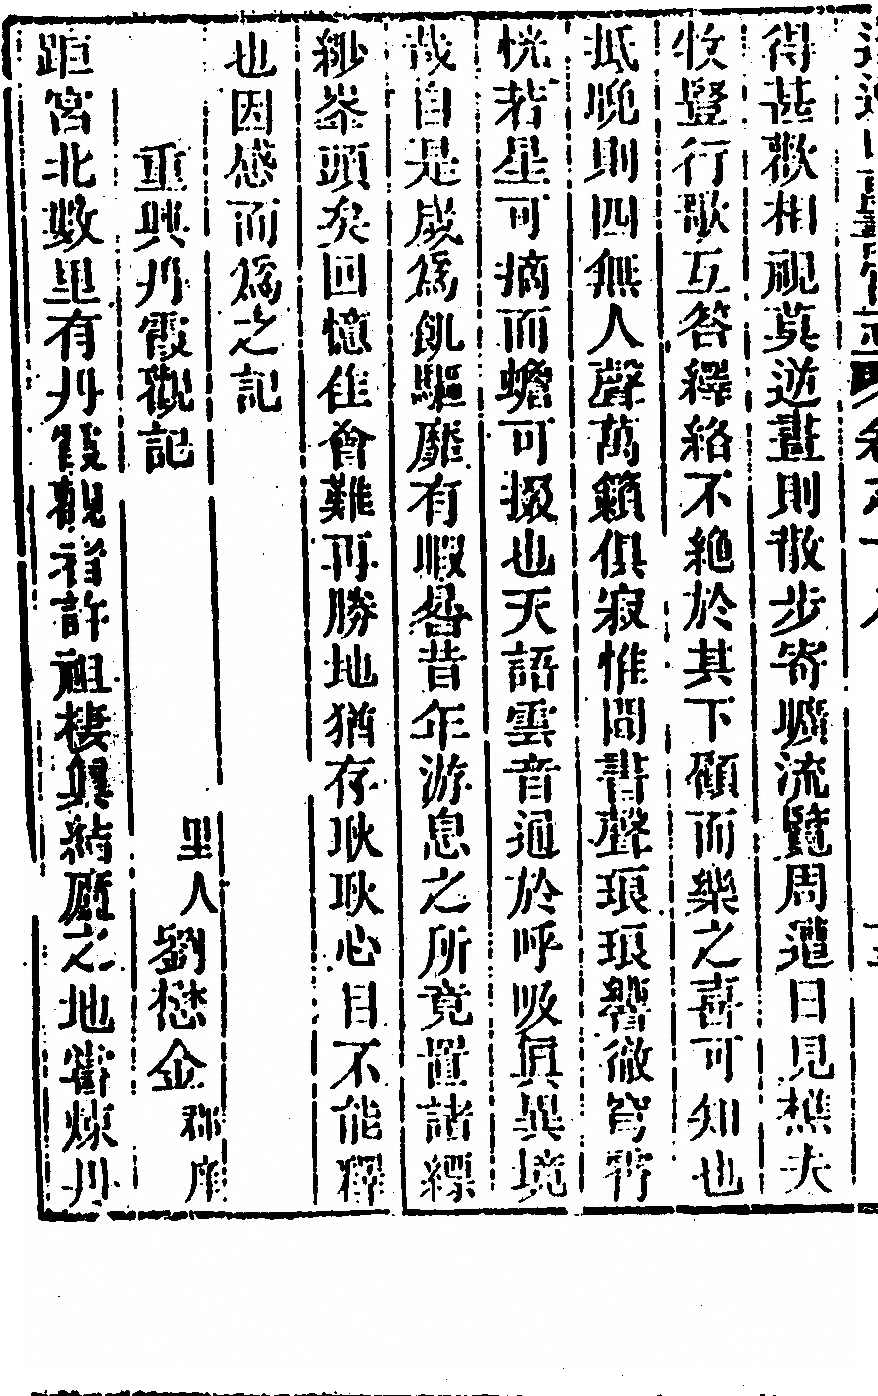 得甚歡相視莫逆晝則散步寄曠流覽周遭日見樵夫
牧豎行歌互答繹絡不絶於其下顧而樂之喜可知也
抵晚則四無人聲萬籟俱寂惟聞書聲琅琅響徹穹窿
恍若星可摘而蟾可掇也天語雲音通於呼吸眞異境
哉自是歲爲飢驅靡有暇晷昔年游息之所竟置諸縹
緲峯頭矣回憶佳會難再勝地猶存耿耿心目不能釋
也因感而爲之記
重興丹霞觀記
里人劉懋金郡庠
距宮北數里有丹霞觀者許祖棲眞結廬之地嘗煉丹